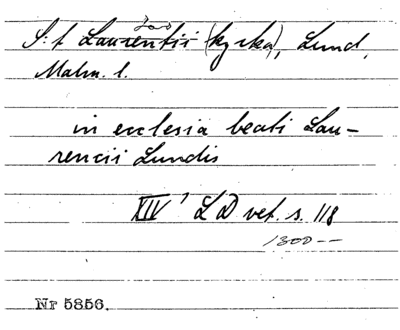 S:t Laurentii (kyrka), Lund,
Malm. l.
in ecclesia beati Lau-
rencii Lundis
XIV' LD vet. s. 118
1300--
Nr 5856.